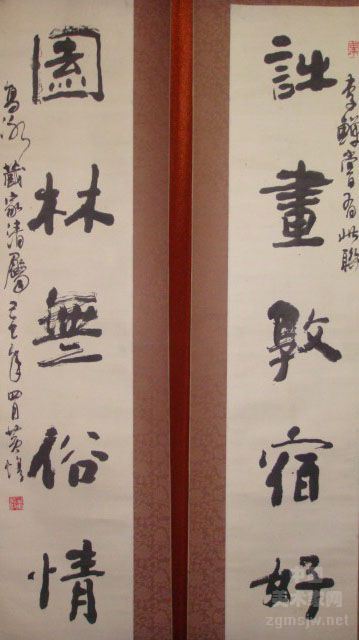 李鱓嘗有此聯
詩畫敦宿好
園林無俗情
藏家清屬 年四月黃惇
美术家网
zgmsjw.net